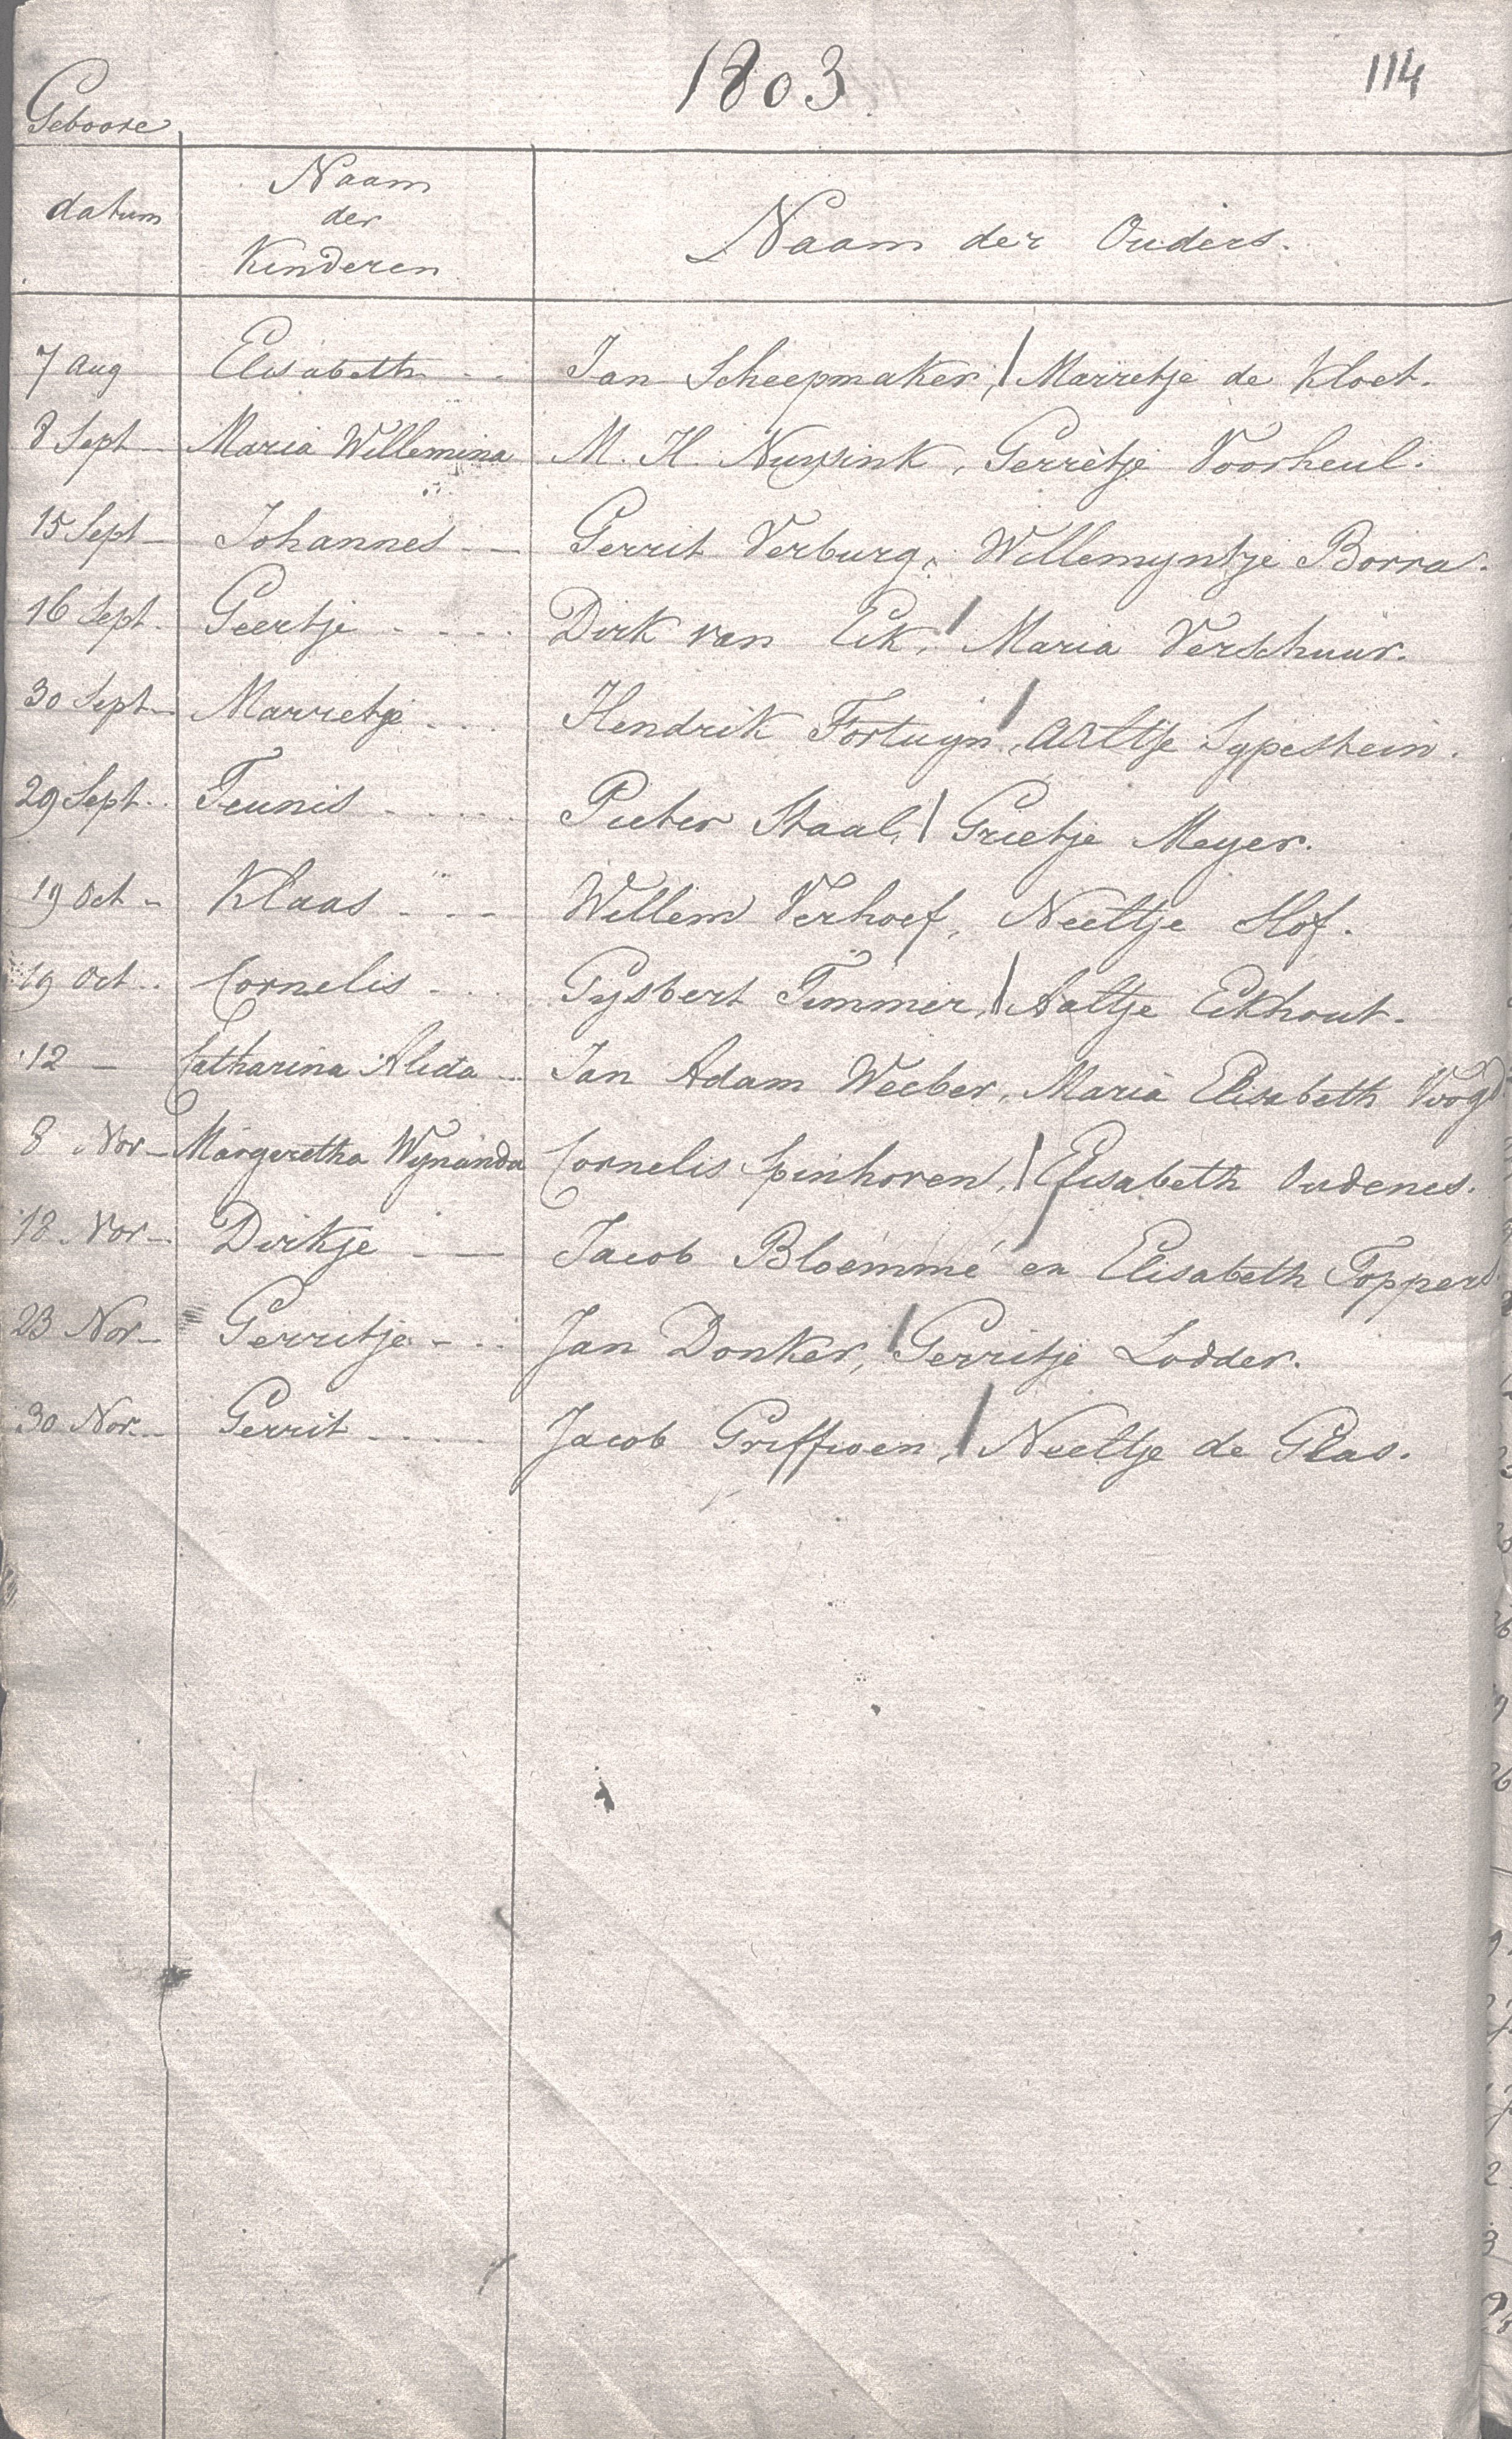 1803
114
Geboore
datum
Naam
der
Kinderen
Naam der Ouders.
7 Aug Elisabeth - - Jan Scheepmaker, / Marretje de Kloet.
8 Sept Maria Willemina M. H. Nuysink, Gerretje Voorheul.
15 Sept - Johannes - - Gerrit Verburg, Willemyntje Borra.
16 Sept. Geertje - - - - Dirk van Eik, / Maria Verschuur.
30 Sept - Marretje - - Hendrik Fortuyn /, Aaltje Sypestein.
29 Sept. Teunis - - - - - Pieter Staal, / Grietje Meyer.
19 Oct - Klaas - - - Willem Verhoef, Neeltje Hof.
19 Oct. Cornelis - - - Gysbert Timmer, / Aaltje Eikhout.
12 - Catharina Alida - Jan Adam Weeber, Maria Elisabeth Voogd
8 Nov - Margeretha Wynanda Cornelis Spinhoven, / Elisabeth Oudenes.
18 Nov - Dirkje - - Jacob Bloemmé en Elisabeth Toppers
23 Nov - Gerritje - - - Jan Donker, / Gerritje Lodder.
30 Nov - Gerrit - - - - Jacob Griffioen, / Neeltje de Glas.